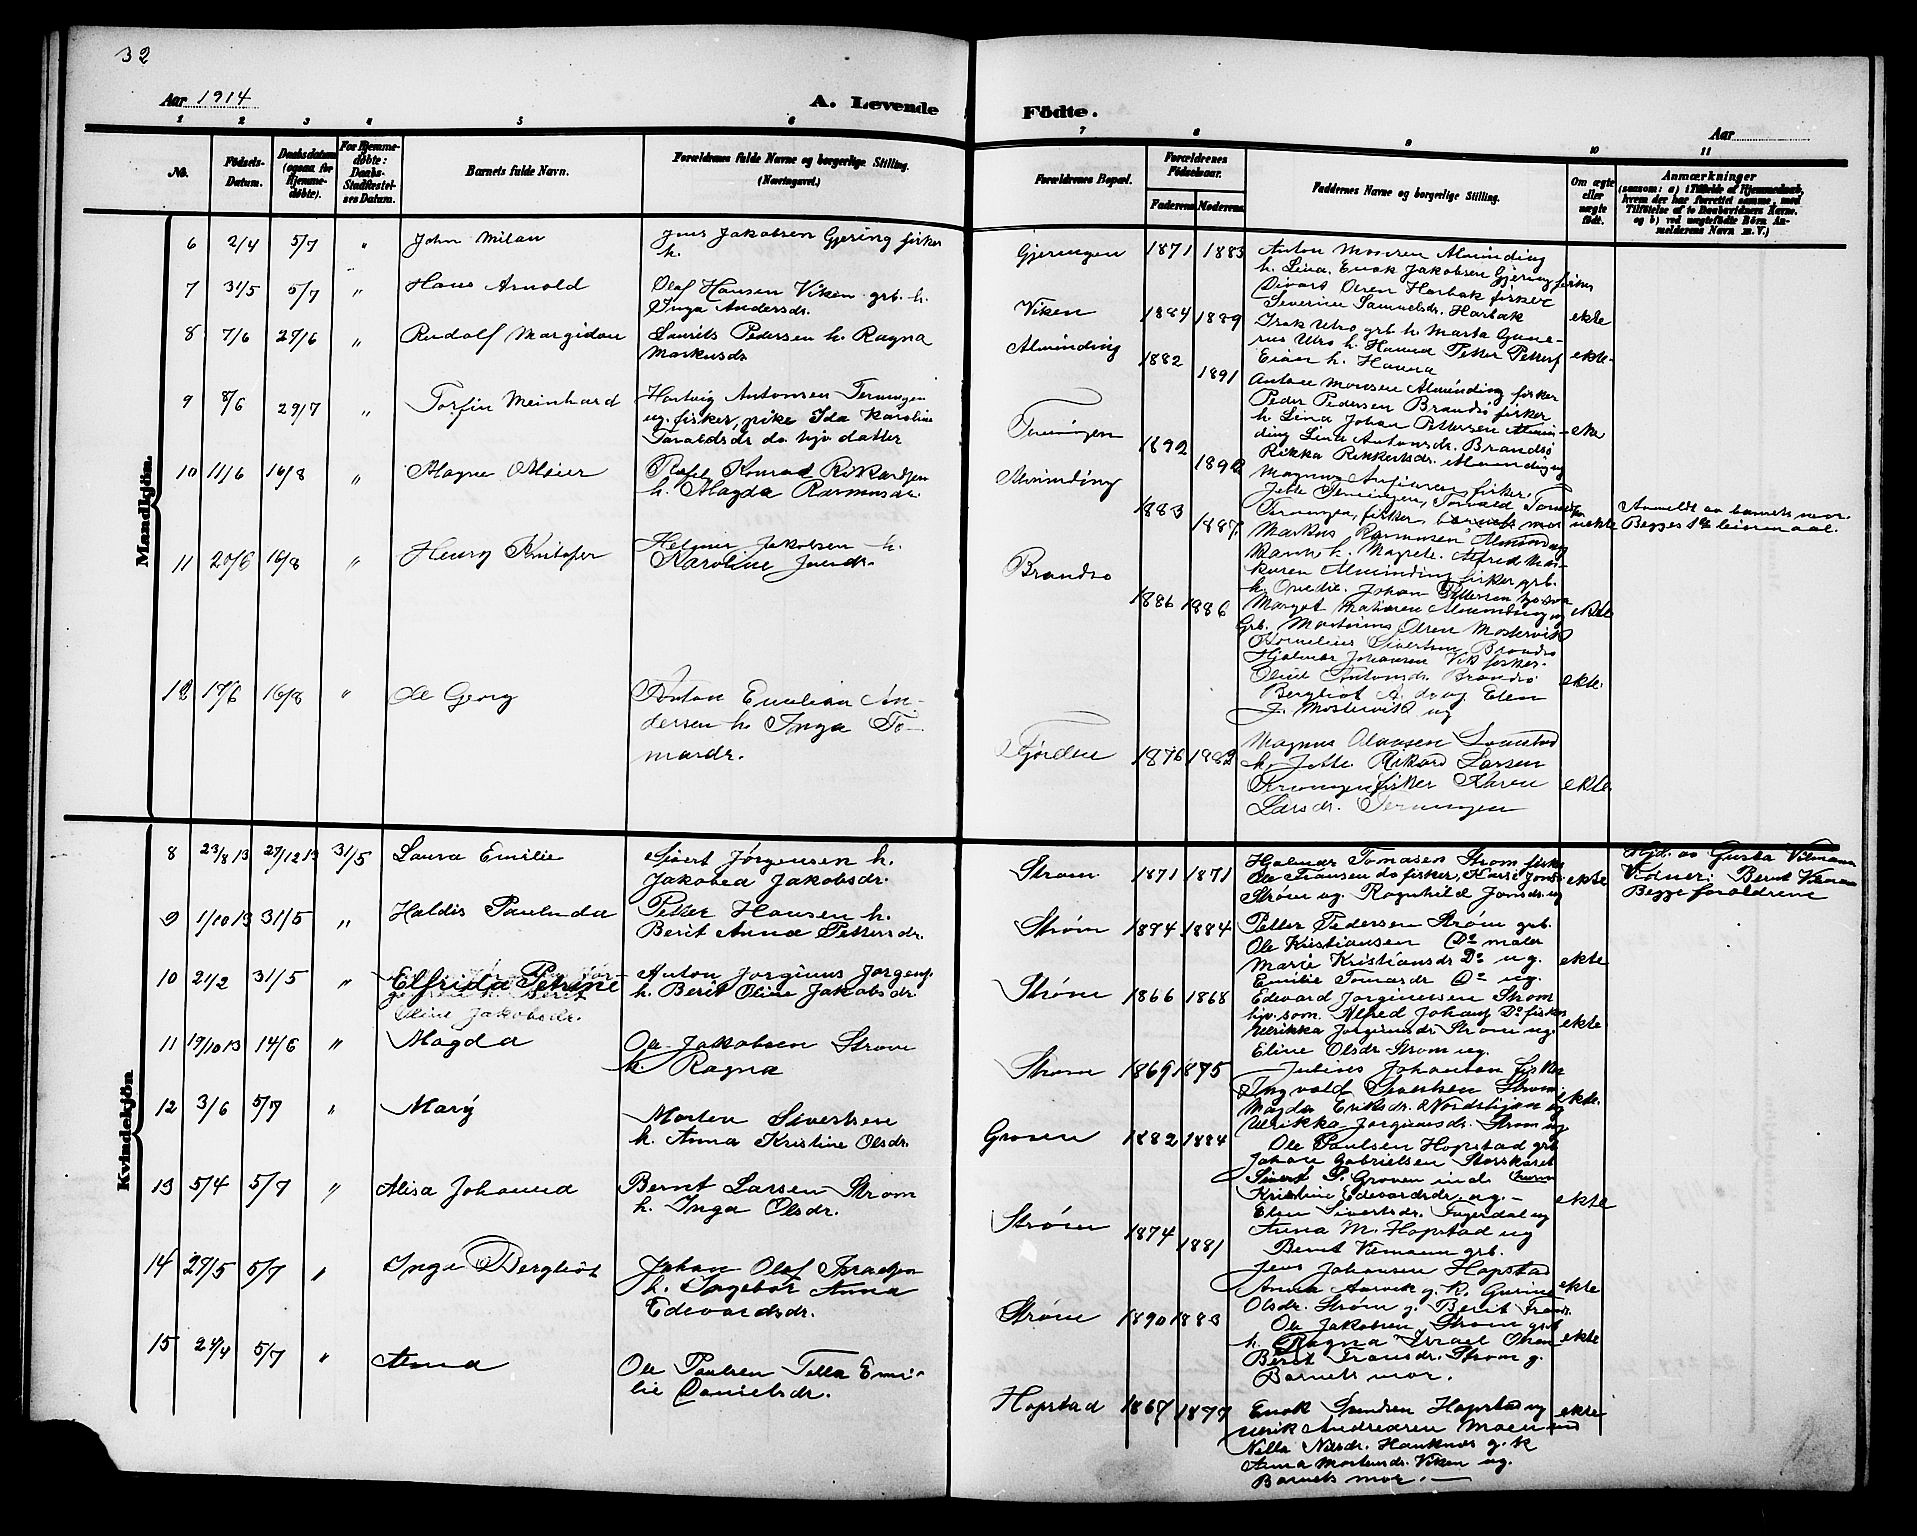 32
Aar 1914
A. Levende
1 2 3 4 5 6
No.
Födsels-Datum.
Daabsdatum (ogsaa for Hjemme-døbte).
For Hjemme-døbte: Daabs-Stadfæstel-ses Datum.
Barnets fulde Navn.
Forældrenes fulde Navne og borgerlige Stilling.
Mandkjön.
6 2/4 5/7 " John Milan
Jens Jakobsen Gjering fisker
h.
7 31/5 5/7 " Hans Arnold
Olaf Hansen Viken grb. h.
Inga Andersdr.
8 7/6 29/6 " Rudolf Margidon
Laurits Pedersen h. Ragna
Markusdr
9 8/6 29/7 " Torfin Meinhard
Hartvig Antonsen Terningen
ug. fisker, pike Ida Karoline
Taraldsdr do hjv datter
10 11/6 16/8 " Magne Otheier
Konrad Rikkardsen
h. Magda Rasmusdr.
11 20/6 16/8 " Henry Kristofer
Helmer Jakobsen h.
Karoline Jensdr.
12 17/6 16/8 " Ole Georg
Anton Emelius An-
dersen h. Inga To-
masdr.
Kvindekjön
8 23/8 13 27/12 13 31/5 Laura Emilie
Sivert Jörgensen h.
Jakobea Jakobsdr.
9 1/10 13 31/5 " Haldis Paulinda
Petter Hansen h.
Berit Anna Pettersdr.
10 21/2 31/5 " Elfrida Petrine
Oline Jakobsdr.
Anton Jorginus Jorgens.
h. Berit Oline Jakobsdr
11 19/10 13 14/6 " Magda
Ole Jakobsen Strøm
h. Ragna
12 3/6 5/7 " Mary
Morten Sivertsen
h. Anna Kristine Olsdr.
13 5/4 5/7 " Alisa Johanna
Bernt Larsen Strøm
h. Inga Olsdr.
14 29/5 5/7 " Inga Bergliot
Johan Olaf Israelsen
h. Ingebor Anna
Edevardsdr.
15 24/4 5/7 " Anna
Ole Paulsen Tella Emi-
lie Danielsdr.
Födte.
Aar
7 8 9 10 11
Forældrenes Bopæl.
Forældrenes Födselsaar.
Faderens Moderens
Faddernes Navne og borgerlige Stilling.
Om ægte eller uægte født.
Anmærkninger
Gjeringen 1871 1883
Anton Monsen Alminding
h. Lina, Enok Jakobsen Gjering fisker
Sivart Olsen Harbak fisker
Severine Samuelsdr. Harbak ekte
Viken 1884 1889
Isak Utro grb h. Marta Gune-
rus Utro h. Hanna Petter Petters
h. Hanna ekte
Alminding 1882 1891
Anton Monsen Alminding fisker
Peder Pedersen Brandsø fisker
h. Lina Johan Pettersen Almin-
ding Lina Antonsdr. Brandsø
Rikka Rikkertsdr. Alminding ekte
Terningen 1892 1892
Jette Terningen, Torvald
Terningen, fisker, barnets mor uekte
Anmeldt av barnets mor.
Begges 1ste leiermaal.
Alminding 1883 1887
Markus Rasmusen Alminding
h. Magrete. Alfred Mar-
kusen Alminding fisker grb.
h. Johan Pettersen
Alminding ug ekte
Brandsø 1886 1886
Grb. Martinus Olsen Mostervik
Kornelius Sivertsen Brandsø
Hjalmar Johansen Vik fisker.
Oline Antonsdr. Brandsø ekte.
Bergliot A. do og Elen
J. Mostervik ug
Fjorden 1876 1882
Magnus Olausen
h. Jette Rikard Larsen
Terningen fisker Karen ekte
Larsdr. Terningen
Strøm 1871 1871
Hjalmar Tomasen Strøm fisker
Ole Fransen do fisker, Kari ekte
Strøm ug. Ragnhild Jonsdr. ug
Hjd. av Gusta Vilmann
Vidner: Bernt Vilmann
Begge forældrene
Strøm 1874 1884
Petter Pedersen Strøm grb.
Ole Kristiansen Do maler
Marie Kristiansdr Do ug. ekte
Emilie Tomasdr Do ug.
Strøm 1866 1868
Edevard Jorginussen Strøm
hjv. som. Alfred Johans Do fisker
Ulrikka Jorginusdr Strøm ug. ekte
Eline Olsdr Strøm ug.
Strøm 1869 1875
Julius Johansen fisker
Ingvald Sivertsen Strøm
Magda Eriksdr. Nordskjøn ug ekte.
Ulrikka Jorginusdr. Strøm ug
Groven 1882 1884
Ole Paulsen Hopstad grb
Johan Gabrielsen Storskaret
Sivert P. Groven ind.
Kristine Edevardsdr. ug. ekte
Elen Sivertsdr. Fagerdal ug
Strøm 1874 1881
Anna M. Hopstad ug
Bernt Vilmann grb.
Jens Johansen Hopstad
Anna Aarvik g. K. Gurine ekte
Olsdr. Strøm g. Berit Fransdr.
Strøm 1890 1883
Ole Jakobsen Strøm grb
h. Ragna Israel ekte
Berit Fransdr. Strøm g.
Barnets mor.
Hopstad 1867 1877
Enok Svendsen Hopstad ug ekte
Ulrik Andreasen Moen ind
Nella Nilsdr. Hauknes g. k
Anna Mortensdr. Viken ug.
Barnets mor.